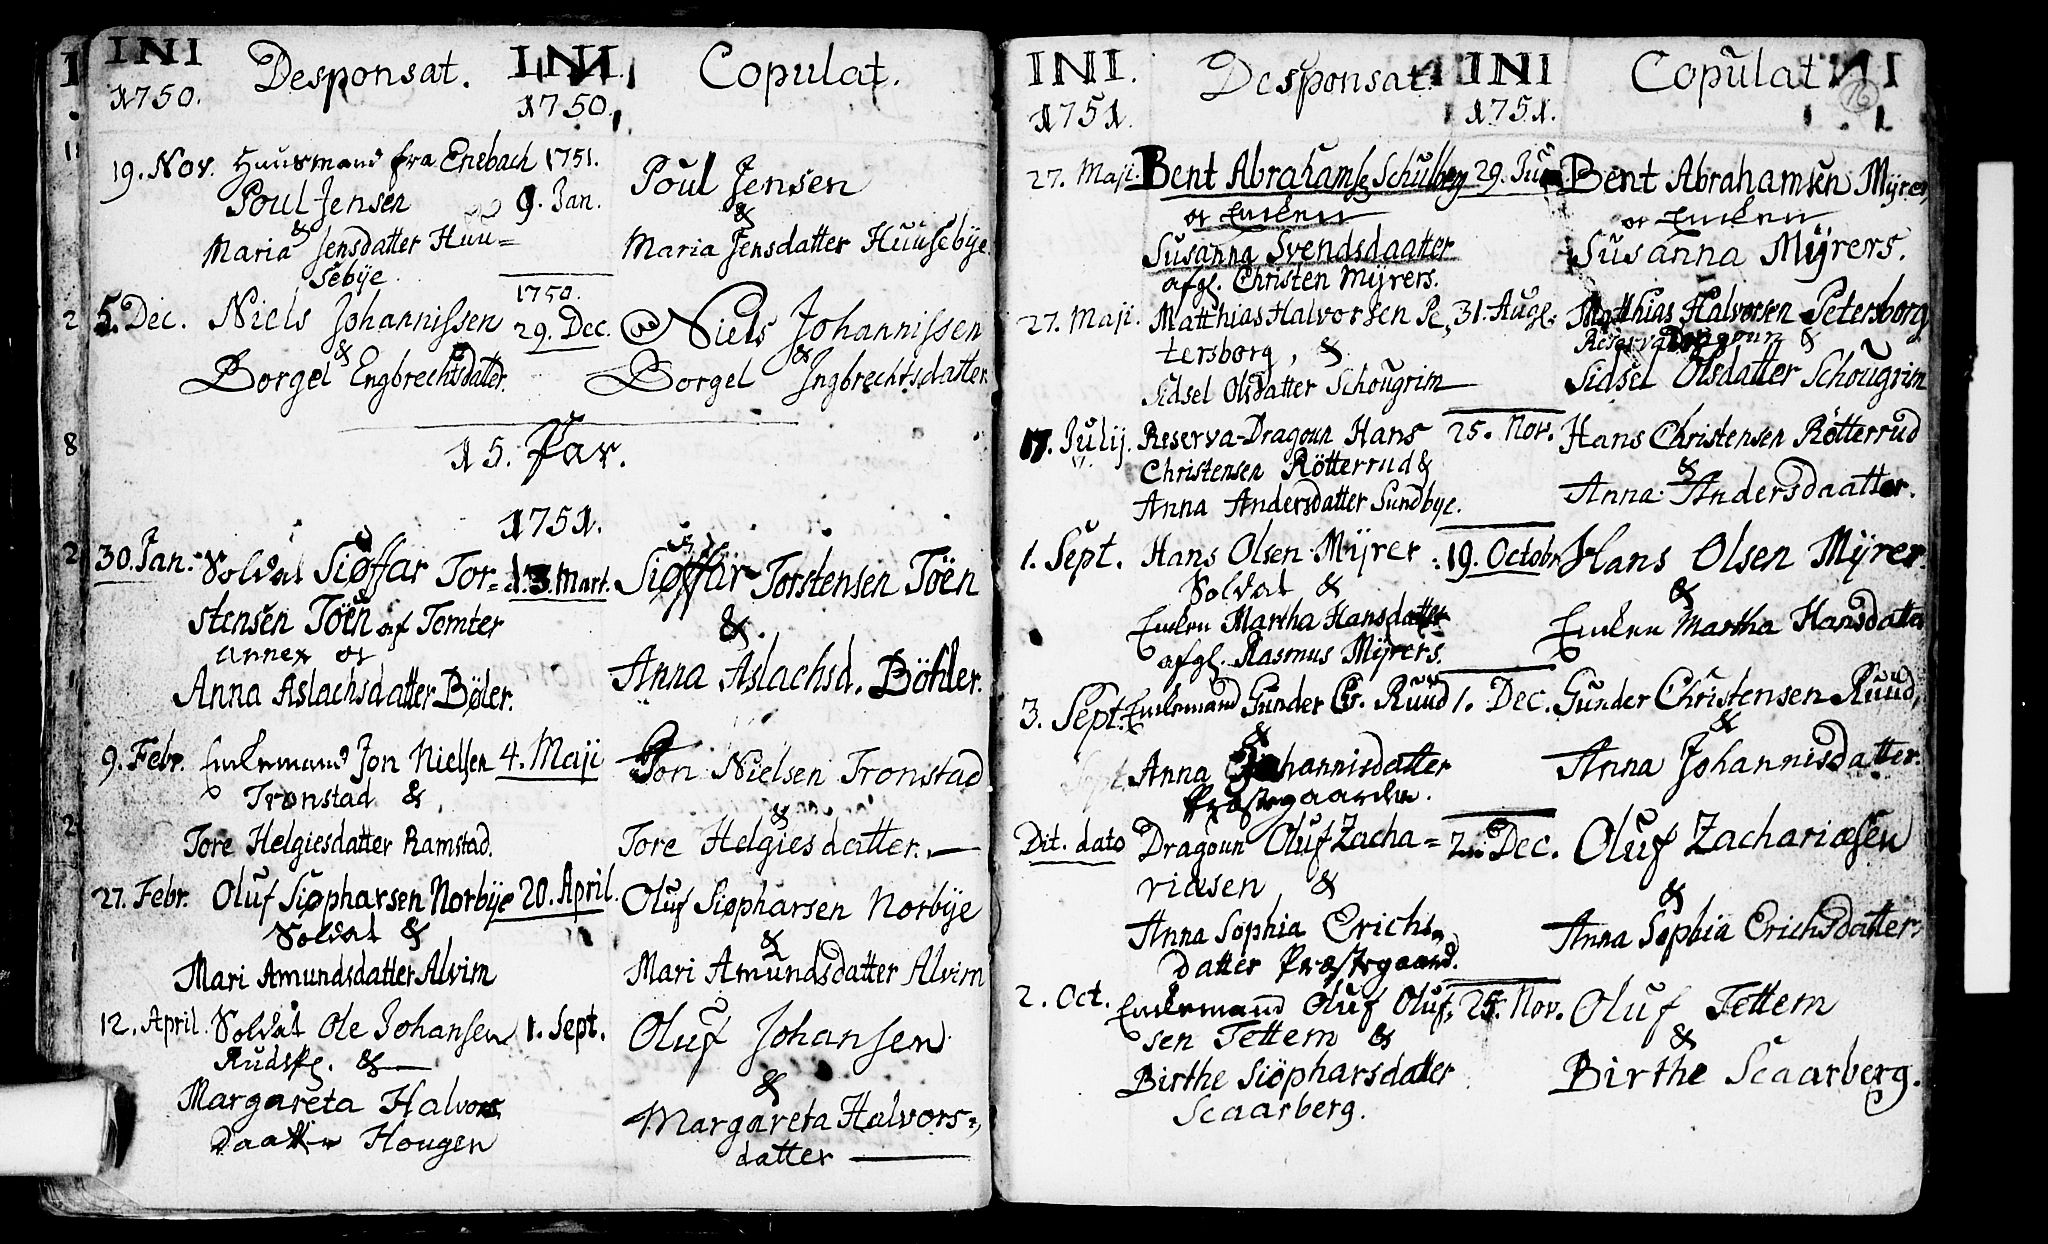 INI
1750.
Desponsat.
INI
1750.
Copulat.
19. Nov. Huusmand fra Enebach
Poul Jensen
&
Maria Jensdatter Huu=
sebÿe.
1751.
9. Jan.
Poul Jensen
&
Maria Jensdatter Huusebÿe
5. Dec. Niels Johannissen
&
Borgel Engbrechtsdatter.
1750.
29. Dec.
Niels Johannissen
&
Borgel Ingbrechtsdatter
15. Par.
1751.
30. Jan. Soldat Siøffar Tor=
stensen Töen af Tomter
annex og
Anna Aslachsdatter Bøler.
d. 3. Mart.
Siøffar Torstensen Töen
&
Anna Aslachsd. Böhler.
9. Febr. Enkemand Jon Nielsen
Tronstad &
Tore Helgiesdatter Ramstad.
4. Maji
Jon Nielsen Tronstad
&
Tore Helgiesdatter.
27. Febr. Oluf Siøpharsen Norbÿe
Soldat &
Mari Amundsdatter Alvim
20. April.
Oluf Siøpharsen Norbÿe
&
Mari Amundsdatter Alvim
12. April. Soldat Ole Johansen
Rudspl. &
Margareta Halvors
daatter Hougen
1. Sept.
Oluf Johansen
&
Margareta Halvors=
datter
INI.
1751.
Desponsat.
INI
1751.
Copulat
16
27. Maji. Bent Abrahams. Schulberg
og Enken
Susanna Svendsdaatter
afgl. Christen Mÿrers.
29. Jun.
Bent Abrahamsen Mÿrer,
og Enken
Susanna Mÿrers.
27. Maji. Matthias Halvorsen Pe=
tersborg, &
Sidsel Olsdatter Schougrim
31. Aug.
Matthias Halvorsen Petersborg
Reserva Dragoun &
Sidsel Olsdatter Schougrim
17. Julij. Reserva-Dragoun Hans
Christensen Rötterrud &
Anna Andersdatter Sundbye.
25. Nov.
Hans Christensen Rötterrud
&
Anna Andersdaatter.
1. Sept. Hans Olsen Mÿrer
Soldat &
Enken Martha Hansdatter
afgl. Rasmus Mÿrers.
19. Octobr.
Hans Olsen Mÿrer.
&
Enken Martha Hansdatter
3. Sept. Enkemand Gunder Chr. Ruud
&
Anna Johannisdatter
Præstegaarden.
1. Dec.
Gunder Christensen Ruud,
&
Anna Johannisdatter.
Dit. dato Dragoun Oluf Zacha=
riasen &
Anna Sophia Erichs=
datter Præstegaard.
2. Dec.
Oluf Zachariæsen
&
Anna Sophia Erichsdatter.
2. Oct. Enkemand Oluf Oluf=
sen Tettem &
Birthe Siöpharsdatter
Scaarberg.
25. Nov.
Oluf Tettem
&
Birthe Scaarberg.